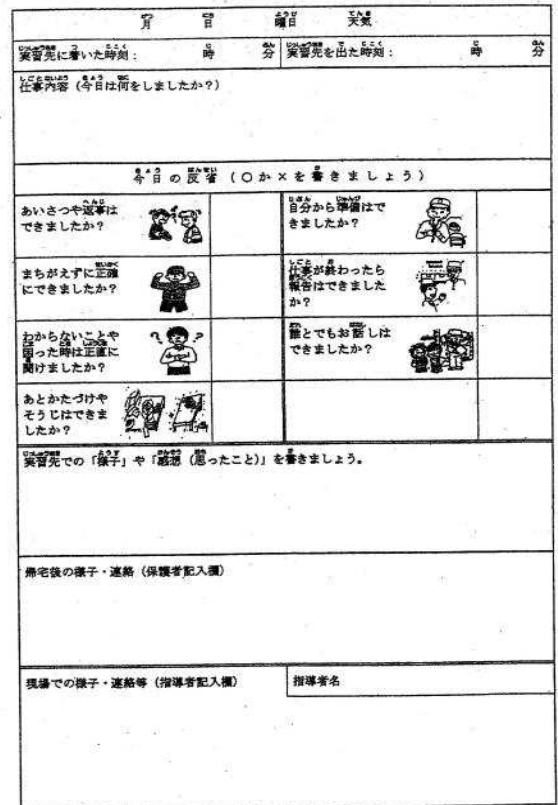 月 日 曜日 天気
実習先に着いた時刻： 時 分 実習先を出た時刻： 時 分
仕事内容（今日は何をしましたか？）
今日の反省（○か×を書きましょう）
あいさつや返事は
できましたか？
自分から準備はで
きましたか？
まちがえずに正確
にできましたか？
仕事が終わったら
報告はできました
か？
わからないことや
困った時は正直に
聞けましたか？
誰とでもお話しは
できましたか？
あとかたづけや
そうじはできま
したか？
実習先での「様子」や「感想（思ったこと）」を書きましょう。
帰宅後の様子・連絡（保護者記入欄）
現場での様子・連絡等（指導者記入欄）
指導者名